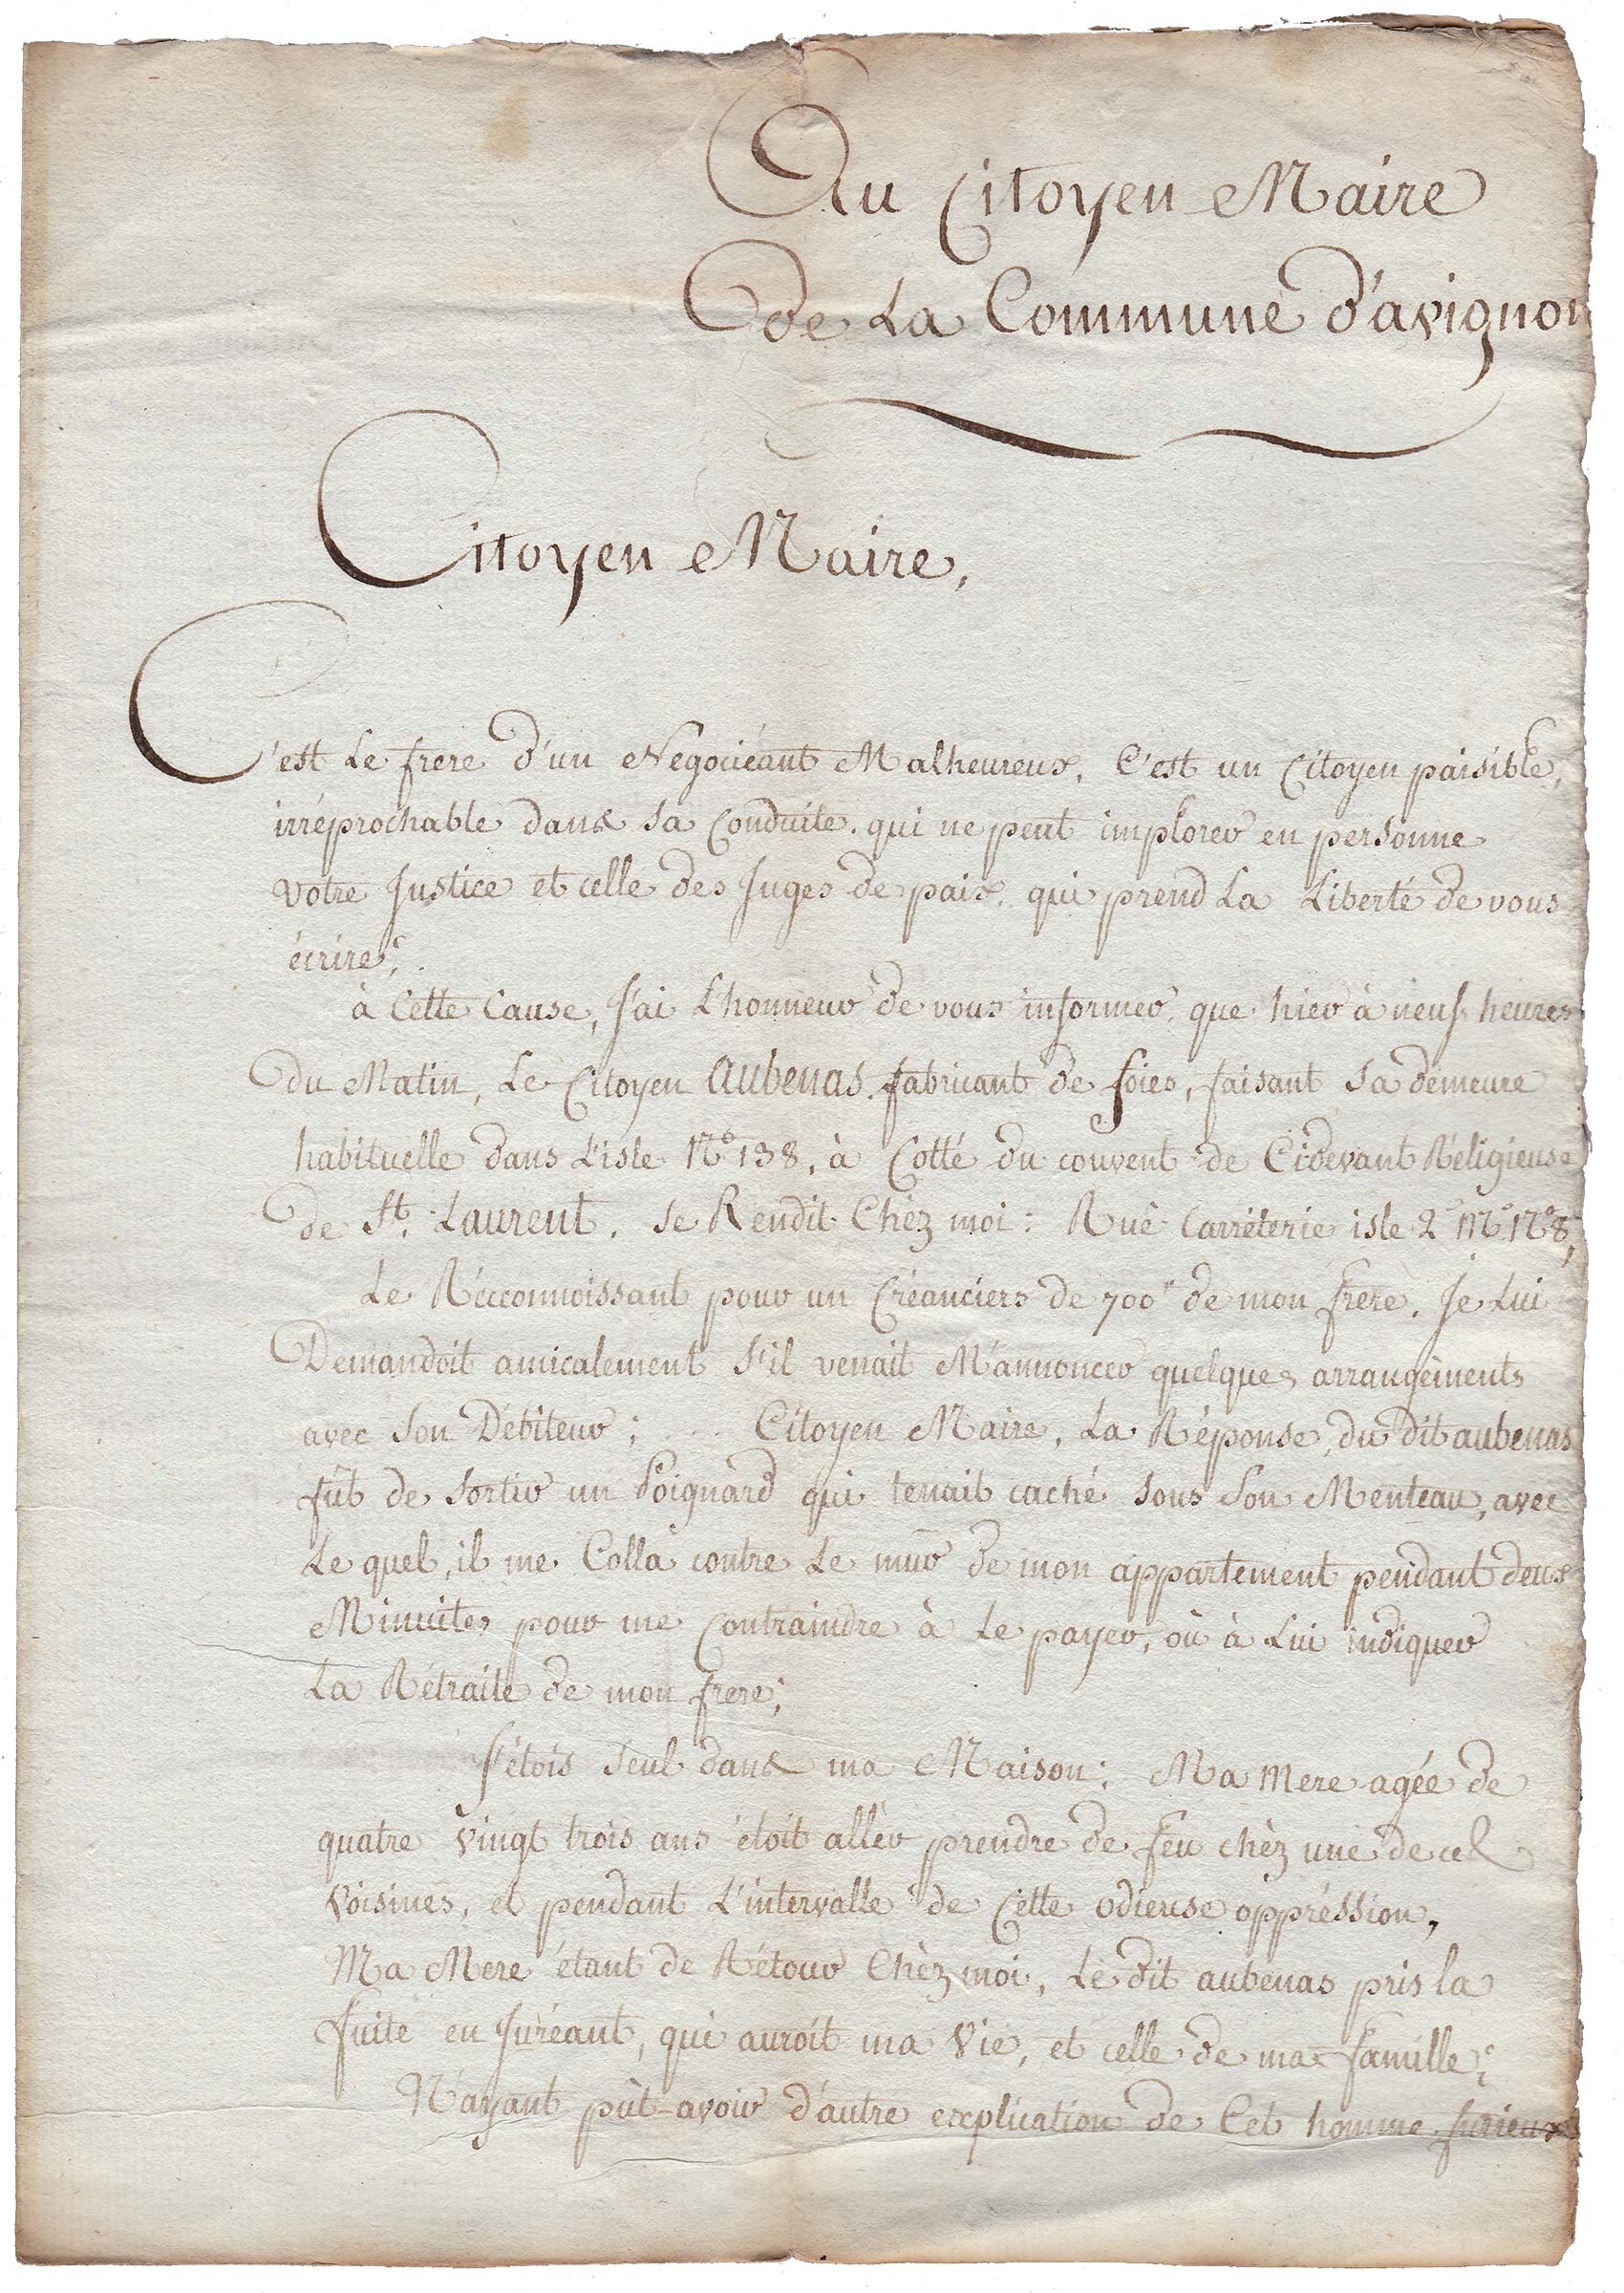 Au Citoyen Maire
de La Commune d'avignon
Citoyen Maire,
C'est Le frere d'un Negociéant Malheureux, C'est un Citoyen paisible,
irréprochable dans sa Conduite. qui ne peut implorer en personne
votre Justice et celle des Juges de paix. qui prend La Liberté de vous
écrire;
à Cette Cause, J'ai L'honneur de vous informer, que hier à neuf heures
du Matin, Le Citoyen Aubenas. fabricant de soies, faisant sa demeure
habituelle dans L'isle N.° 138, à Cotté du couvent de Cidevant Réligieuse
de St. Laurent. se Rendit Chèz moi: Ruë Carréterie isle 2 N.° 8,
Le Récconnoissant pour un Créanciers de 700# de mon frere. Je Lui
Demandoit amicalement s'il venait M'annoncer quelques arrangéments
avec son Débiteur; ... Citoyen Maire, La Réponse, du dit aubenas
fut de sortir un Poignard qui tenait caché sous son Menteau, avec
Le quel, il me Colla contre Le mur de mon appartement pendant deux
Minuites pour me Contraindre à Le payer, où à Lui indiquer
La Rétraite de mon frere;
J'étois seul dans ma Maison; Ma Mere agée de
quatre vingt trois ans étoit allér prendre de feu chèz une de ces
Voisines, et pendant L'intervalle de Cette odieuse oppréssion,
Ma Mere étant de Rétour Chèz moi, Le dit aubenas pris la
fuite en Juréant, qui auroit ma Vie, et celle de ma famille;
N'ayant pùt avoir d'autre explication de Cet homme furieux